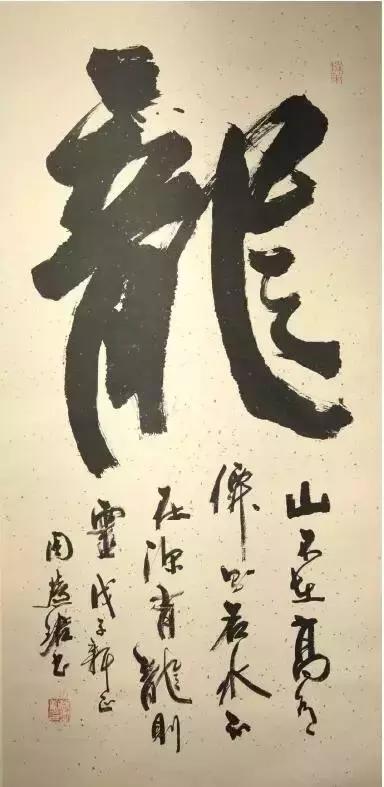 龍
山不在高有
僊則名水不
在深有龍則
靈戊子新正
周慧珺书